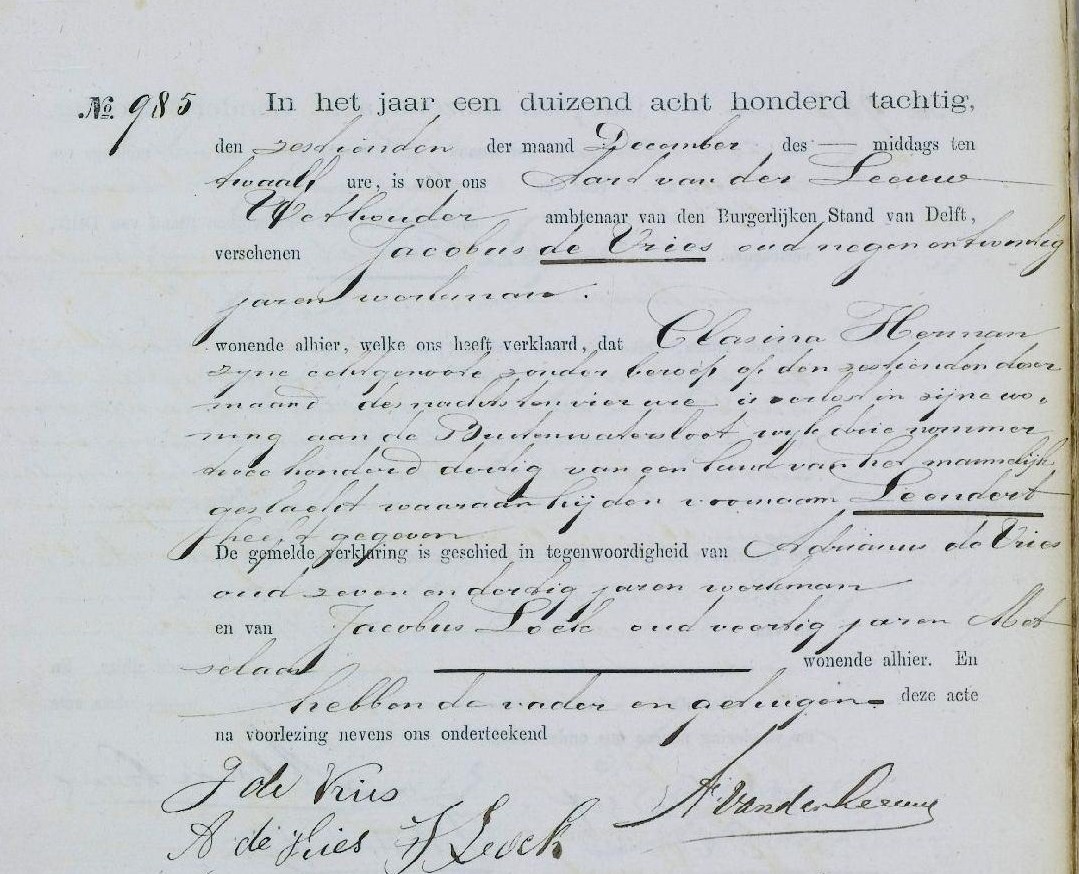 No. 985 In het jaar een duizend acht honderd tachtig,
den zestienden der maand December, des — middags ten
twaalf ure, is voor ons Aart van der Leeuw
Wethouder ambtenaar van den Burgerlijken Stand van Delft,
verschenen Jacobus de Vries oud negen en twintig
jaren workman.
wonende alhier, welke ons heeft verklaard, dat Clasina Herman
zijne echtgenoote zonder beroep op den zestienden dezer
maand des nachts ten vier ure is verlost in zijne wo-
ning aan de Buitenwatersloot wijk drie nommer
twee honderd dertig van een kind van het mannelijk
geslacht waaraan hij den voornaam Leendert
heeft gegeven
De gemelde verklaring is geschied in tegenwoordigheid van Adrianus de Vries
oud zeven en dertig jaren workman
en van Jacobus Loek oud veertig jaren Met
selaar wonende alhier. En
hebben de vader en getuigen deze acte
na voorlezing nevens ons onderteekend
J de Vries
A van der Leeuw
A de Vries J Loek